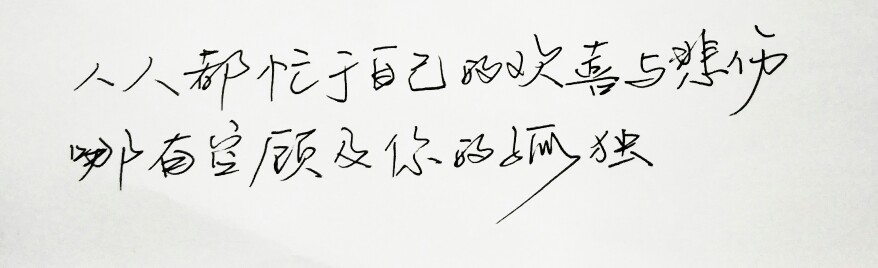 人人都忙于自己的欢喜与悲伤
哪有空顾及你的孤独